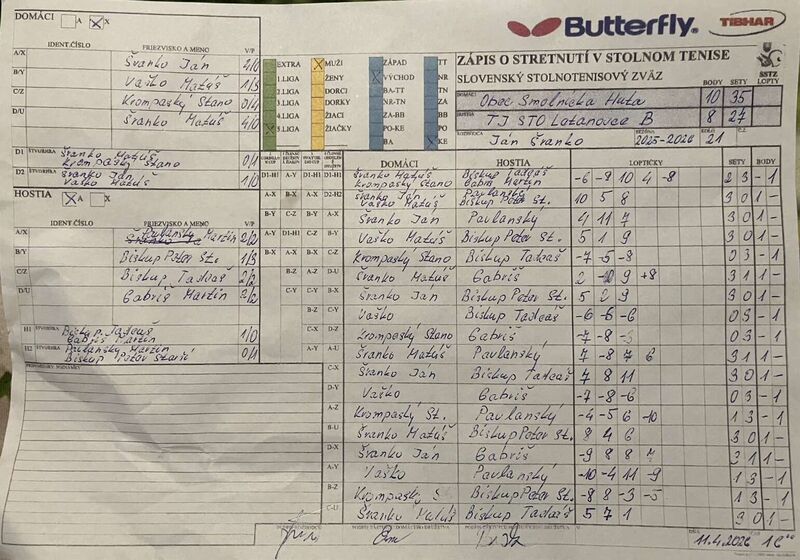 DOMÁCI A X
Butterfly TIBHAR
IDENT.ČÍSLO PRIEZVISKO A MENO V/P
A/X Švanko Ján 4/0
B/Y Vaško Matúš 1/3
C/Z Krompaský Stano 0/4
D/U Švanko Matúš 4/0
D1 ŠTVORHRA Švanko Matúš Krompaský Stano 0/1
D2 ŠTVORHRA Švanko Ján Vaško Matúš 1/0
HOSTIA A X X
IDENT.ČÍSLO PRIEZVISKO A MENO V/P
A/X Pavlanský Martin 2/2
B/Y Biskup Peter St. 1/3
C/Z Biskup Tadeáš 2/2
D/U Gabriš Martin 2/2
H1 ŠTVORHRA Biskup Tadeáš Gabriš Martin 1/0
H2 ŠTVORHRA Pavlanský Martin Biskup Peter Starší 0/1
EXTRA X MUŽI ZÁPAD TT
1.LIGA ŽENY X VÝCHOD NR
2.LIGA DORCI BA-TT
3.LIGA DORKY NR-TN ZA
4.LIGA ŽIACI ZA-BB
X 5.LIGA ŽIAČKY PO-KE
BA X KE
ZÁPIS O STRETNUTÍ V STOLNOM TENISE
SLOVENSKÝ STOLNOTENISOVÝ ZVÄZ
BODY SETY LOPTY
SSTZ
DOMÁCI Obec Smolnícka Huta 10 35
HOSTIA TJ STO Ložanovce B 8 27
ROZHODCA Ján Švanko SEZÓNA 2025-2026 KOLO 21 Č.Z.
DOMÁCI HOSTIA LOPTIČKY SETY BODY
D1-H1 Švanko Matúš Krompaský Stano Biskup Tadeáš Gabriš Martin -6 -9 10 4 -8 2 3 - 1
D2-H2 Švanko Ján Vaško Matúš Pavlanský Biskup Peter St. 10 5 8 3 0 1 -
A-X Švanko Ján Pavlanský 4 11 7 3 0 1 -
B-Y Vaško Matúš Biskup Peter St. 5 1 9 3 0 1 -
C-Z Krompaský Stano Biskup Tadeáš -7 -5 -8 0 3 - 1
D-U Švanko Matúš Gabriš 2 -10 9 +8 3 1 1 -
A-Y Švanko Ján Biskup Peter St. 5 2 9 3 0 1 -
B-Z Vaško Biskup Tadeáš -6 -6 -6 0 3 - 1
C-X Krompaský Stano Gabriš -7 -8 -3 0 3 - 1
A-U Švanko Matúš Pavlanský 7 -8 7 6 3 1 1 -
C-X Švanko Ján Biskup Tadeáš 7 8 11 3 0 1 -
D-Y Vaško Gabriš -7 -8 -6 0 3 - 1
A-Z Krompaský St. Pavlanský -4 -5 6 -10 1 3 - 1
B-U Švanko Matúš Biskup Peter St. 8 4 6 3 0 1 -
D-X Švanko Ján Gabriš -9 8 8 7 3 1 1 -
A-Y Vaško Pavlanský -10 -4 11 -9 1 3 - 1
B-Z Krompaský S Biskup Peter St. -8 8 -3 -5 1 3 - 1
C-U Švanko Matúš Biskup Tadeáš 5 7 1 3 0 1 -
DŇA 11.4.2026